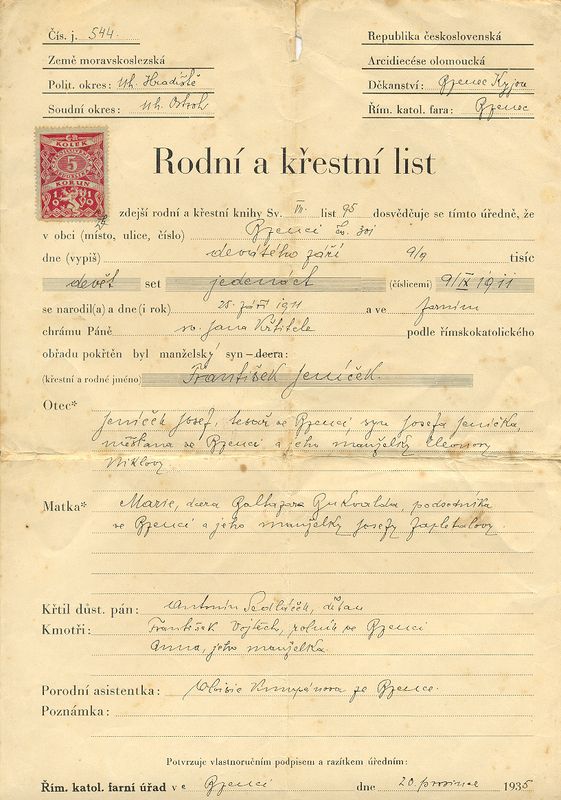 Čís. j. 544.
Republika československá
Země moravskoslezská
Arcidiecése olomoucká
Polit. okres: Uh. Hradiště
Děkanství: Bzenec Kyjov
Soudní okres: Uh. Ostroh
Řím. katol. fara: Bzenec
KOLEK
5
KORUN
Rodní a křestní list
zdejší rodní a křestní knihy Sv. VII. list 95 dosvědčuje se tímto úředně, že
v obci (místo, ulice, číslo) Bzenci čís. 301
dne (vypiš) devátého září 9/9 tisíc
devět set jedenáct (číslicemi) 9/IX 1911
se narodil(a) a dne(i rok) 25. září 1911 a ve farním
chrámu Páně sv. Jana Křtitele podle římskokatolického
obřadu pokřtěn byl manželský syn – dcera:
(křestní a rodné jméno) František Jeníček.
Otec* Jeníček Josef, tesař ve Bzenci, syn Josefa Jeníčka,
měšťana ve Bzenci a jeho manželky Eleonory
Niklovy
Matka* Marie, dcera Baltazara Bukvalda, podsedníka
ve Bzenci a jeho manželky Josefy Zapletalovy.
Křtil důst. pán: Antonín Sedláček, děkan
Kmotři: František Vojtěch, rolník ve Bzenci
Anna, jeho manželka.
Porodní asistentka: Aloisie Krumpánova ze Bzence.
Poznámka:
Potvrzuje vlastnoručním podpisem a razítkem úředním:
Řím. katol. farní úřad v e Bzenci dne 20. prosince 1935